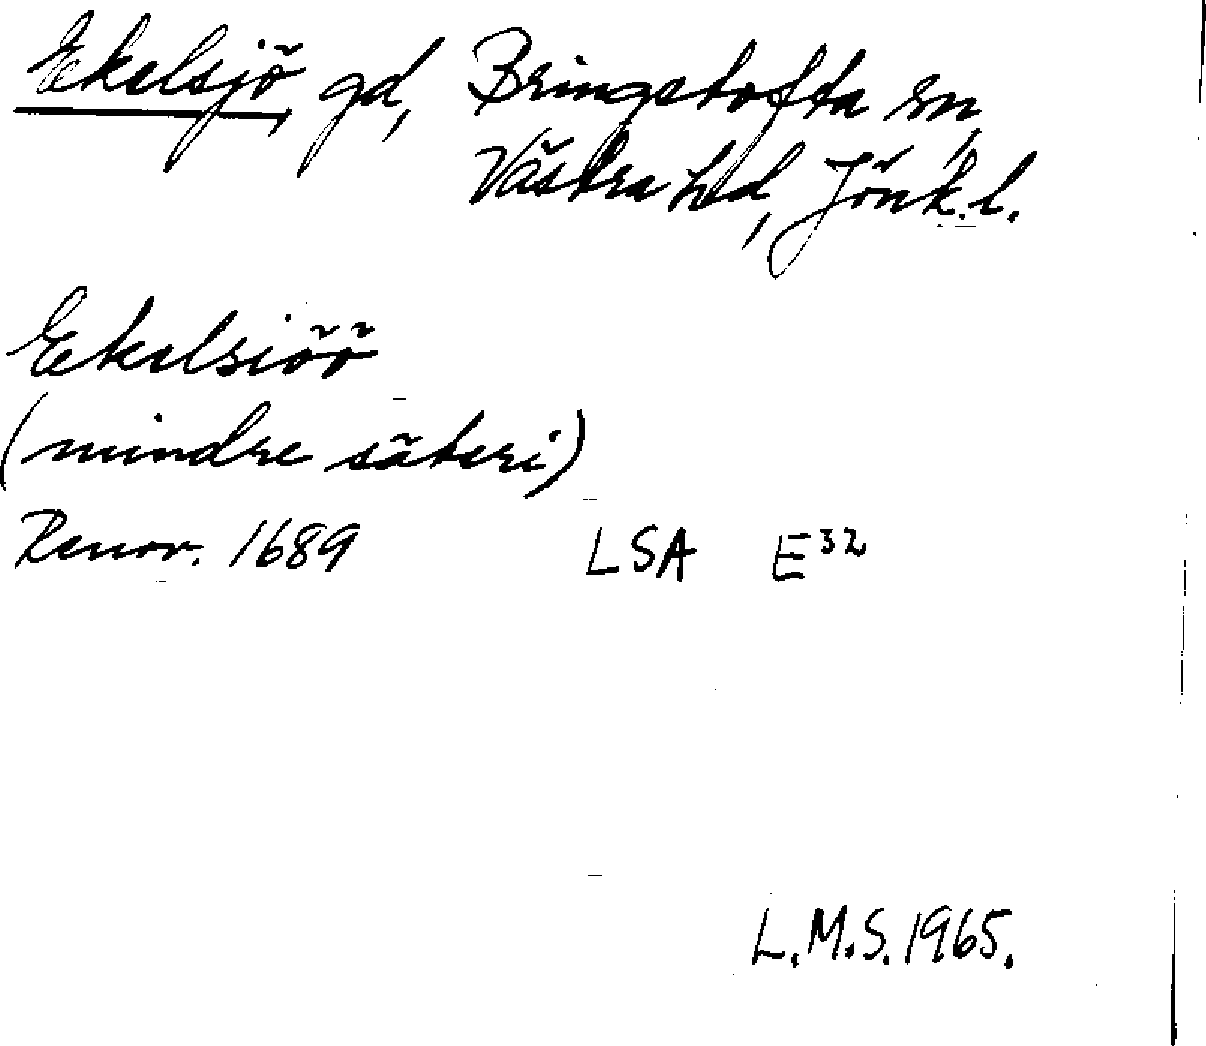 Ekelsjö, gd, Bringetofta sn,
Västra hd, Jönk.l.
Ekelsiöö
(mindre säteri)
Renov. 1689 LSA E32
L.M.S. 1965.